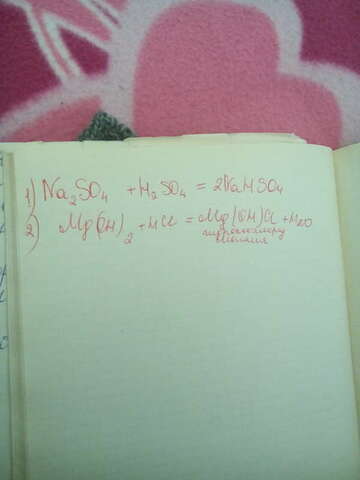 1) Na₂SO₄ + H₂SO₄ = 2NaHSO₄
2) Mg(OH)₂ + HCl = Mg(OH)Cl + H₂O